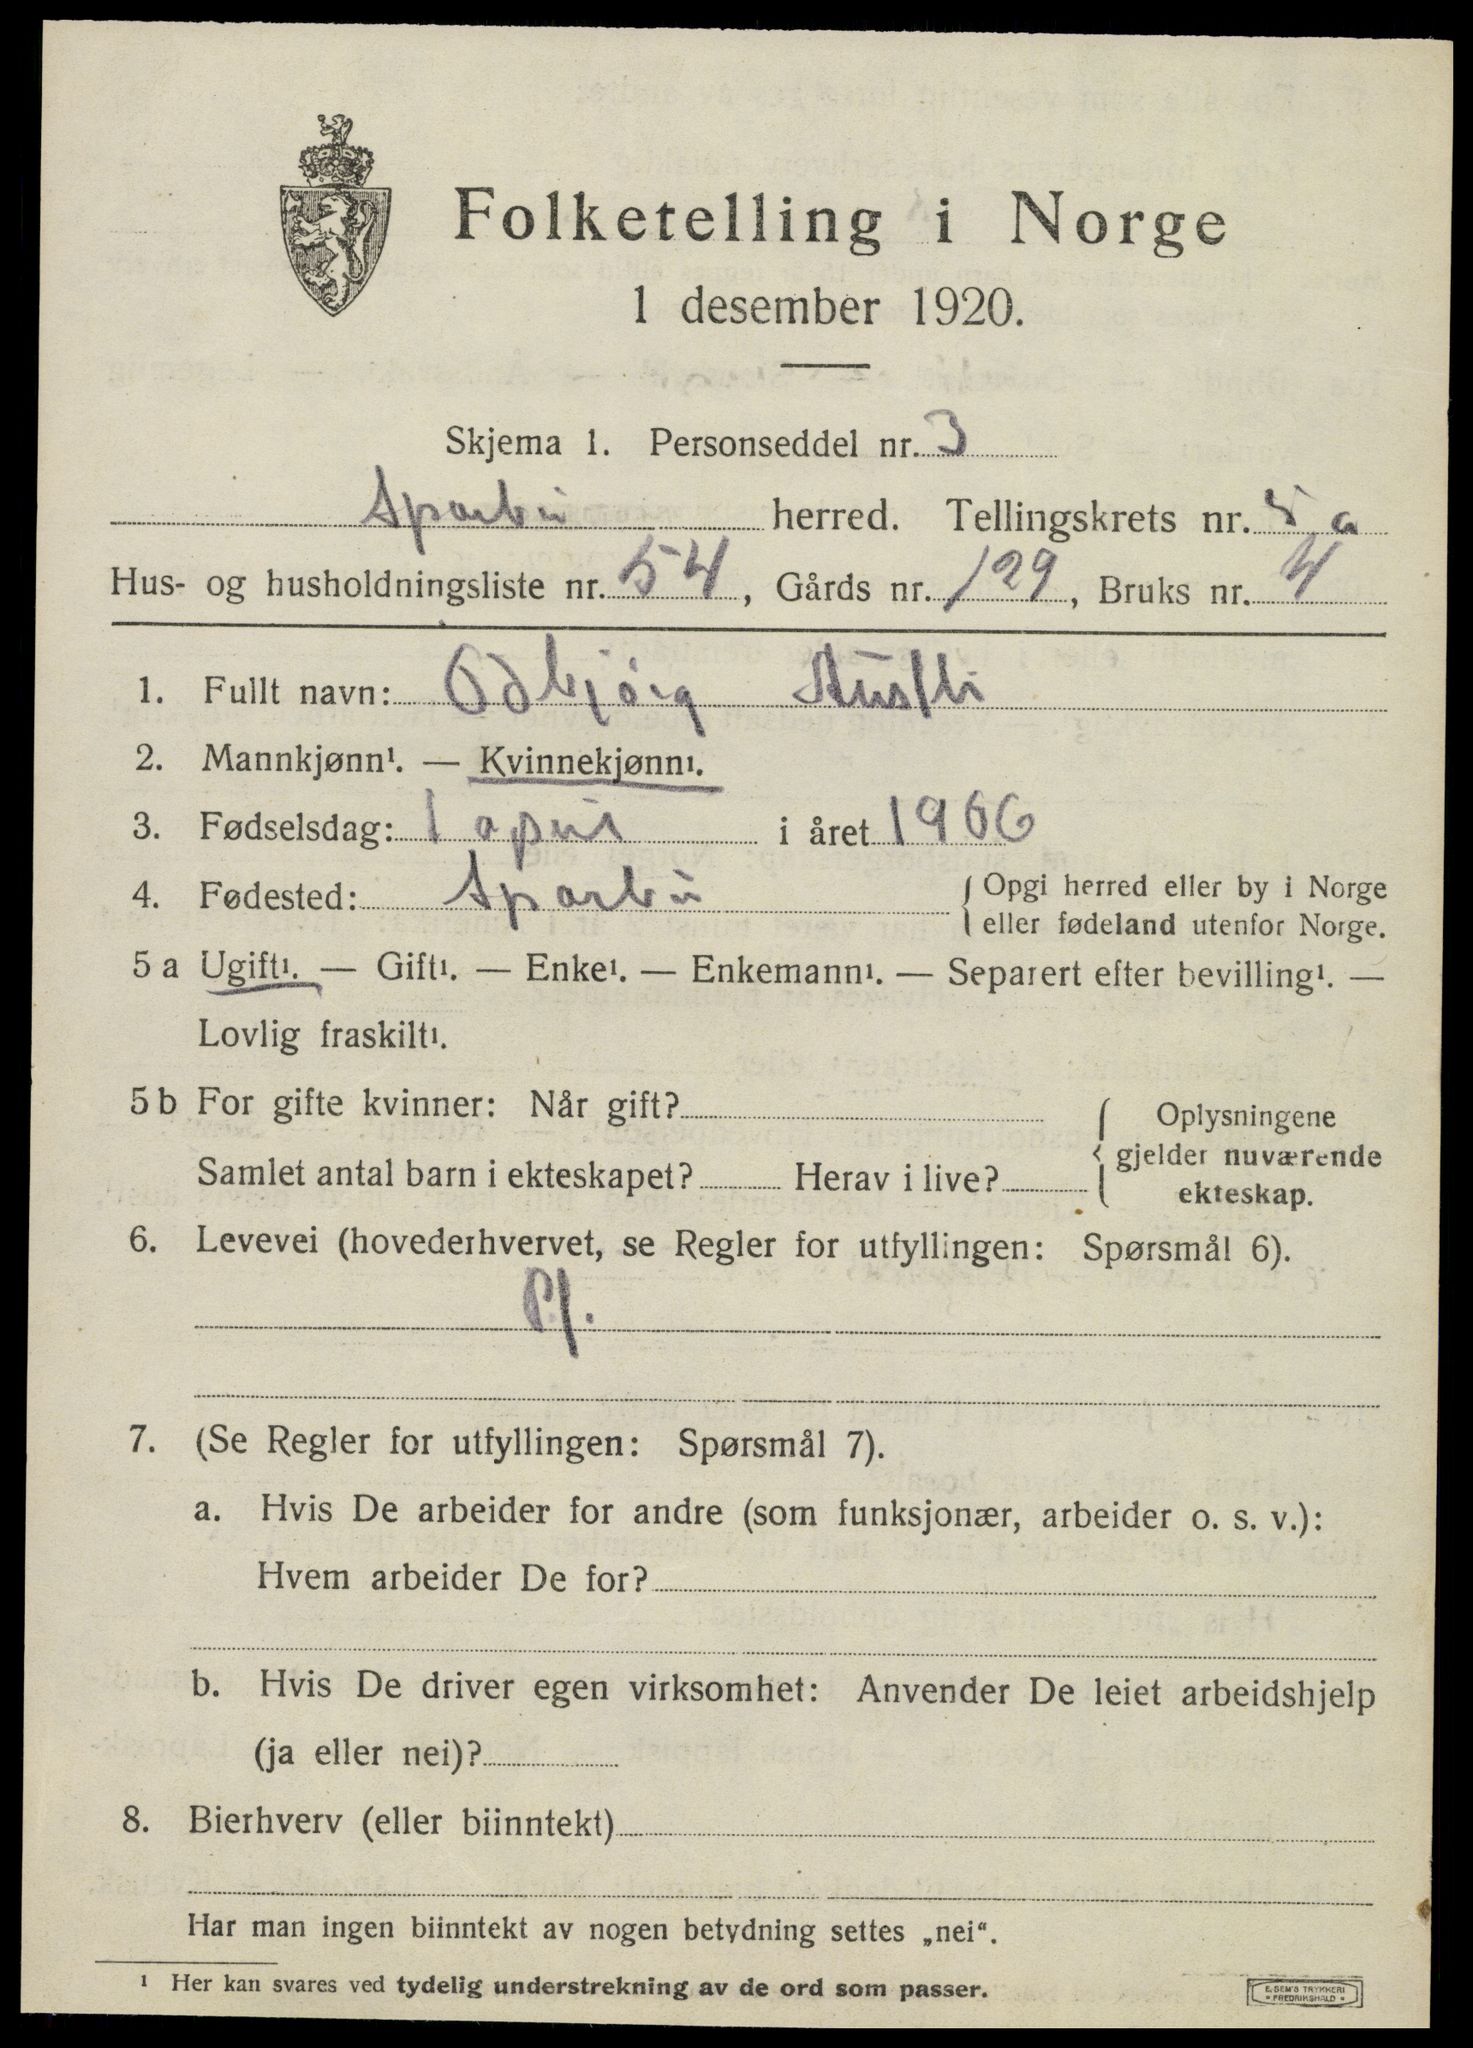 Folketelling i Norge
1 desember 1920.
Skjema 1. Personseddel nr. 3
Sparbu herred. Tellingskrets nr. 5 a
Hus- og husholdningsliste nr. 54, Gårds nr. 129, Bruks nr. 4
1. Fullt navn: Odbjørg Austli
2. Mannkjønn¹. — Kvinnekjønn¹.
3. Fødselsdag: 1 april i året 1906
4. Fødested: Sparbu { Opgi herred eller by i Norge
eller fødeland utenfor Norge.
5 a Ugift¹. — Gift¹. — Enke¹. — Enkemann¹. — Separert efter bevilling¹. —
Lovlig fraskilt¹.
5 b For gifte kvinner: Når gift?
Samlet antal barn i ekteskapet? Herav i live?
{ Oplysningene
gjelder nuværende
ekteskap.
6. Levevei (hovederhvervet, se Regler for utfyllingen: Spørsmål 6).
7. (Se Regler for utfyllingen: Spørsmål 7).
a. Hvis De arbeider for andre (som funksjonær, arbeider o. s. v.):
Hvem arbeider De for?
b. Hvis De driver egen virksomhet: Anvender De leiet arbeidshjelp
(ja eller nei)?
8. Bierhverv (eller biinntekt)
Har man ingen biinntekt av nogen betydning settes „nei“.
¹ Her kan svares ved tydelig understrekning av de ord som passer.
E. SEM'S TRYKKERI
• FREDRIKSHALD •